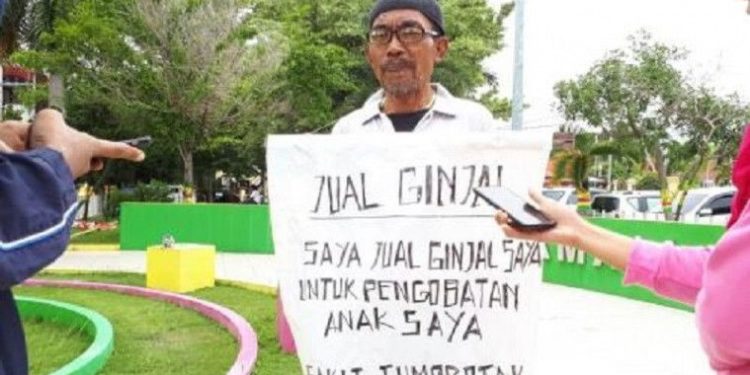 JUAL GINJAL
SAYA JUAL GINJAL SAYA
UNTUK PENGOBATAN
ANAK SAYA